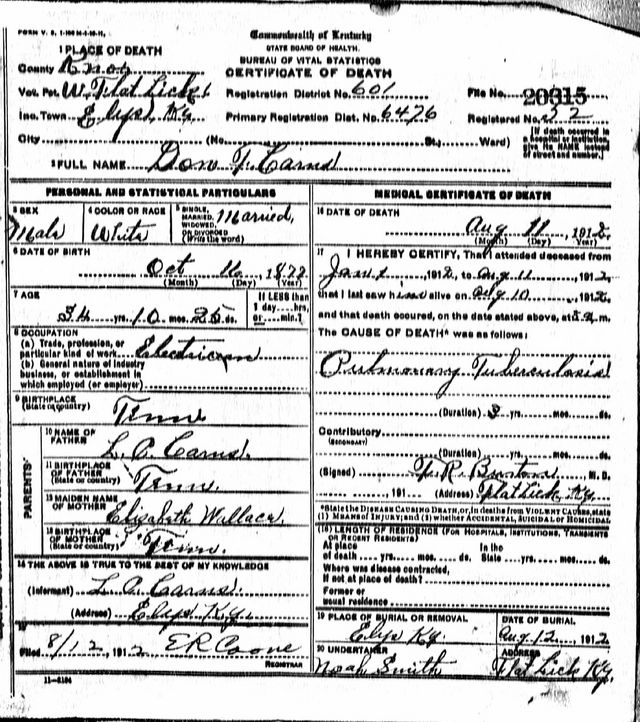 FORM V. S. 1-
Commonwealth of Kentucky
STATE BOARD OF HEALTH.
BUREAU OF VITAL STATISTICS
CERTIFICATE OF DEATH
1 PLACE OF DEATH
County Knox
Vot. Pct. W. Flat Lick
Inc. Town Elys, Ky.
City (No. St.; Ward)
Registration District No. 601
Primary Registration Dist. No. 6476
File No. 20315
Registered No. 32
[If death occurred in a hospital or institution, give its NAME instead of street and number.]
2 FULL NAME Don F. Carns
PERSONAL AND STATISTICAL PARTICULARS
3 SEX
Male
4 COLOR OR RACE
White
5 SINGLE, MARRIED, WIDOWED, OR DIVORCED (Write the word)
Married,
6 DATE OF BIRTH
Oct 16, 18
(Month) (Day) (Year)
7 AGE
34 yrs. 10 mos. 25 ds.
If LESS than 1 day hrs. or min.?
8 OCCUPATION
(a) Trade, profession, or particular kind of work Electrician
(b) General nature of industry business, or establishment in which employed (or employer)
9 BIRTHPLACE
(State or country) Tenn
PARENTS
10 NAME OF FATHER
L. C. Carns
11 BIRTHPLACE OF FATHER
(State or country) Tenn.
12 MAIDEN NAME OF MOTHER
Elizabeth Wallace.
13 BIRTHPLACE OF MOTHER
(State or country) Tenn.
14 THE ABOVE IS TRUE TO THE BEST OF MY KNOWLEDGE
(Informant) L. C. Carns
(Address) Elys Ky.
15
Filed 8/12, 1912 E R Coone
REGISTRAR
11-8184
MEDICAL CERTIFICATE OF DEATH
16 DATE OF DEATH
Aug 11, 1912
(Month) (Day) (Year)
17 I HEREBY CERTIFY, That I attended deceased from
Jan 1 1912, to Aug 11 1912,
that I last saw him alive on Aug 10 1912
and that death occured, on the date stated above, at m.
The CAUSE OF DEATH* was as follows:
Pulmonary Tuberculosis
(Duration) 3 yrs. mos. ds.
Contributory
(SECONDARY)
(Duration) yrs. mos. ds.
(Signed) R. M. D.
, 191 (Address) Flat Lick Ky.
*State the DISEASE CAUSING DEATH, or, in deaths from VIOLENT CAUSES, state (1) MEANS OF INJURY; and (2) whether ACCIDENTAL, SUICIDAL or HOMICIDAL
(18) LENGTH OF RESIDENCE (FOR HOSPITALS, INSTITUTIONS, TRANSIENTS OR RECENT RESIDENTS)
At place of death yrs. mos. ds. In the State yrs. mos. ds.
Where was disease contracted,
If not at place of death?
Former or
usual residence
19 PLACE OF BURIAL OR REMOVAL
Elys Ky.
DATE OF BURIAL
Aug 12, 1912
20 UNDERTAKER
Noah Smith
ADDRESS
Flat Lick Ky.